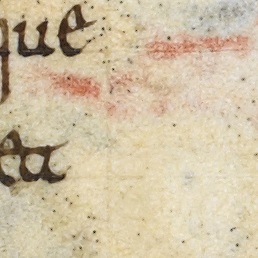 que
ta